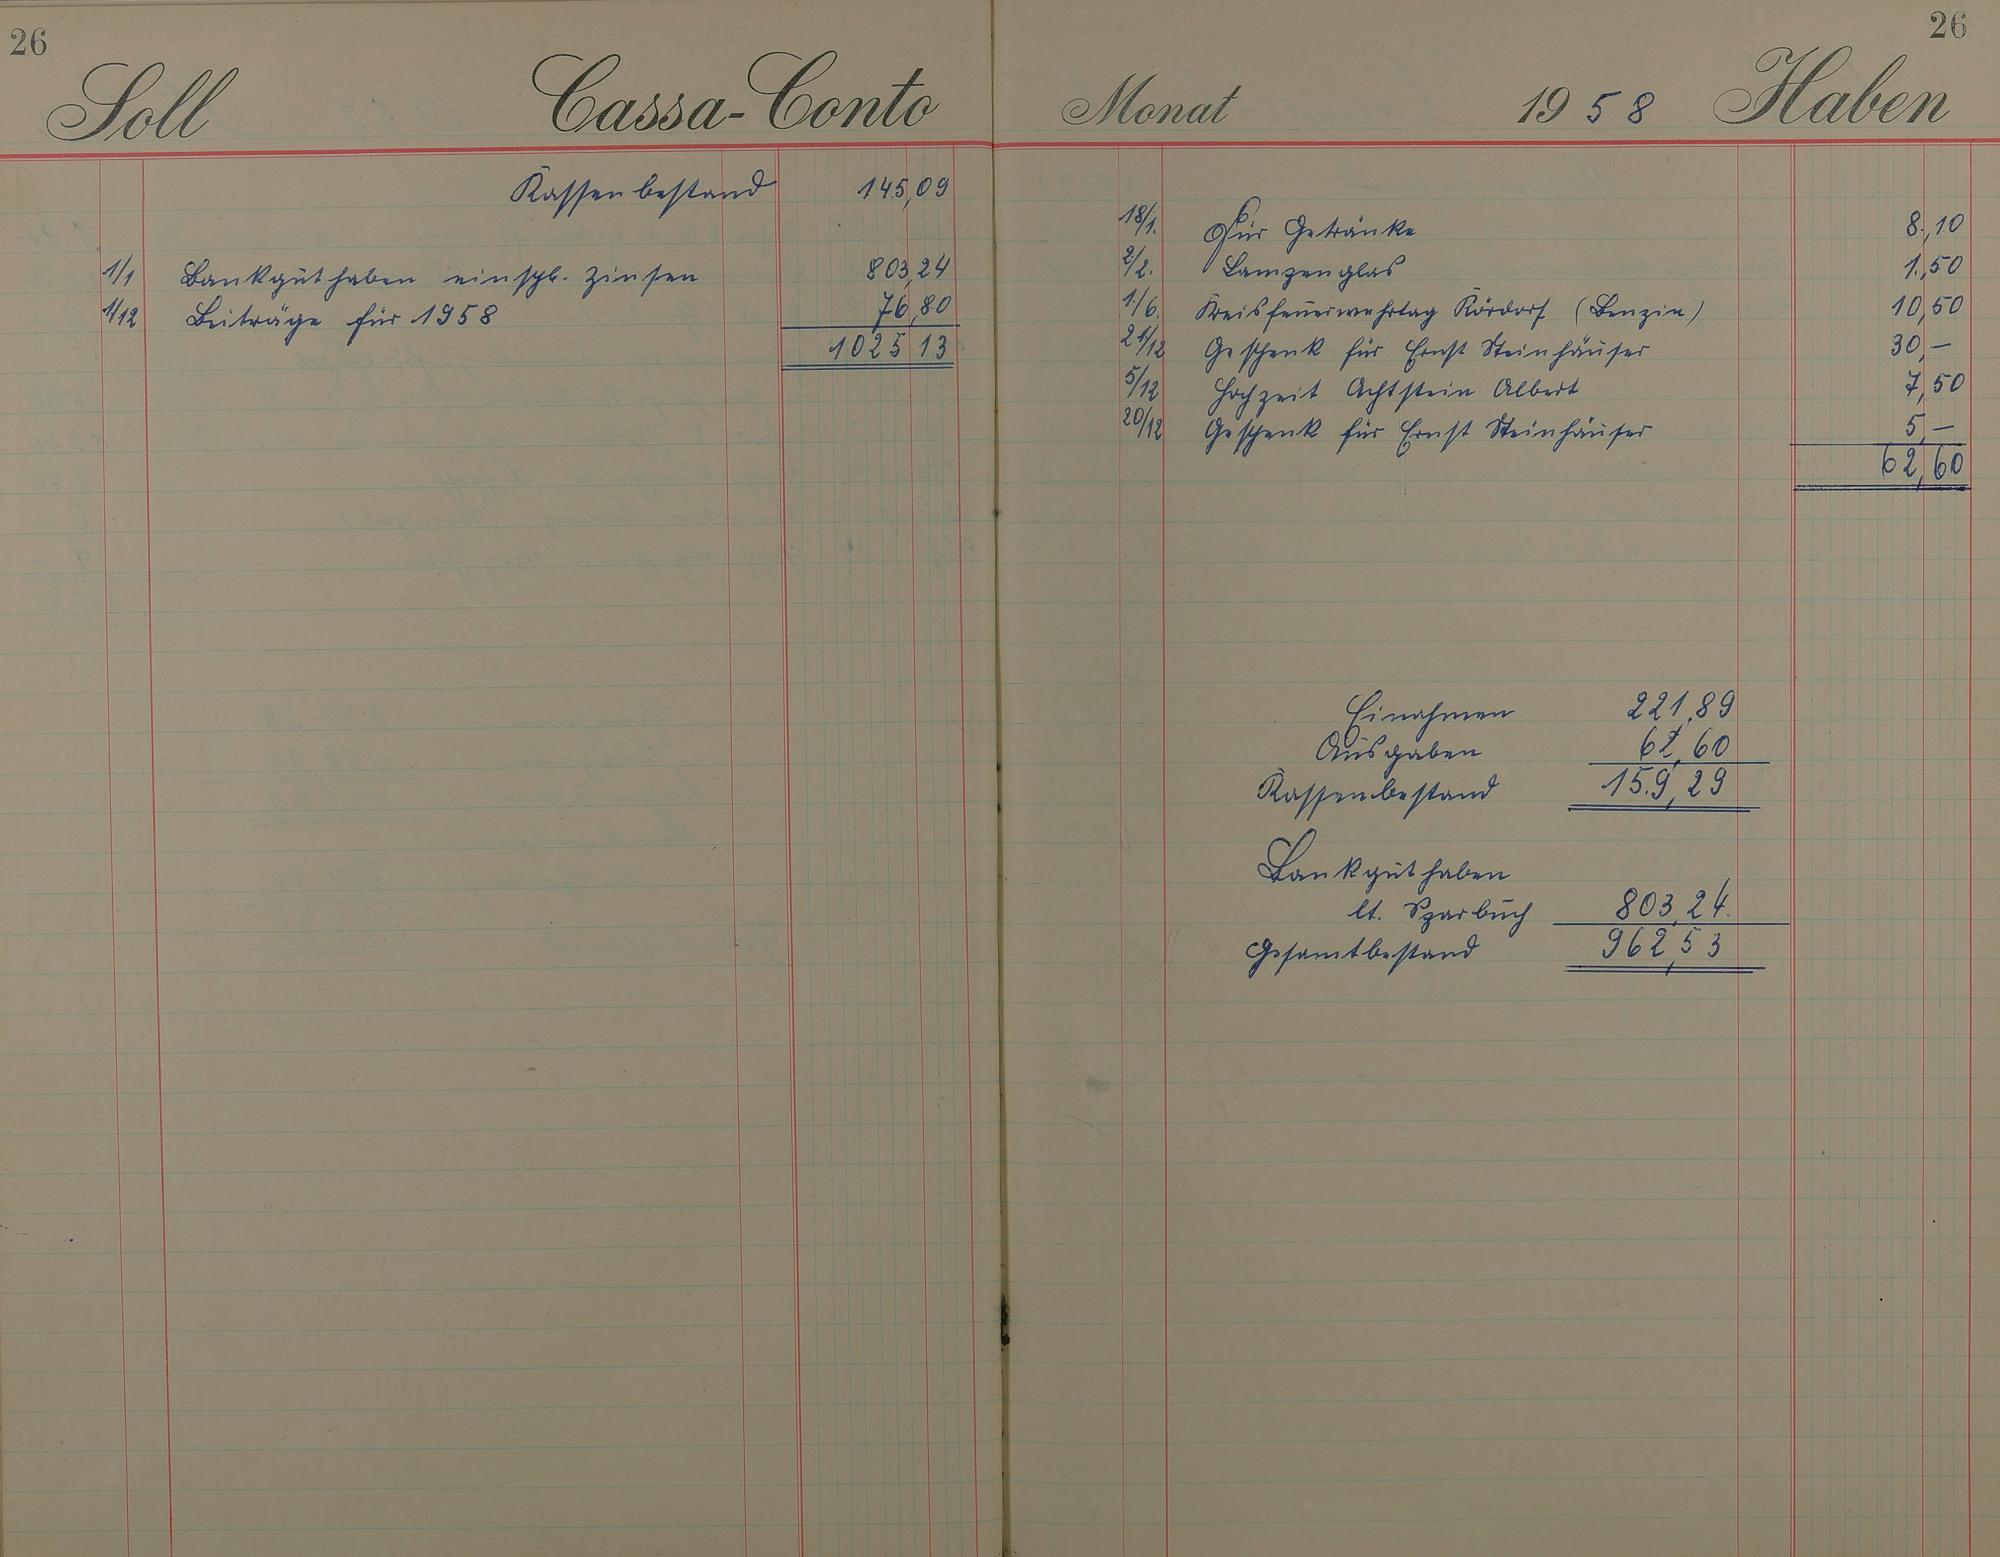 26
Soll Cassa-Conto
Kassenbestand 145,09
1/1 Bankguthaben einschl. Zinsen 803,24
1/12 Beiträge für 1958 76,80
1025 13
26
Monat 1958 Haben
18/1. Für Getränke 8,10
2/2. Lampenglas 1,50
1/6. Kreisfeuerwehrtag Kördorf (Benzin) 10,50
21/12 Geschenk für Ernst Steinhäuser 30,—
5/12 Hochzeit Achtstein Albert 7,50
20/12 Geschenk für Ernst Steinhäuser 5,—
62,60
Einahmen 221,89
Ausgaben 62,60
Kassenbestand 159,29
Bankguthaben
lt. Sparbuch 803,24
Gesamtbestand 962,53